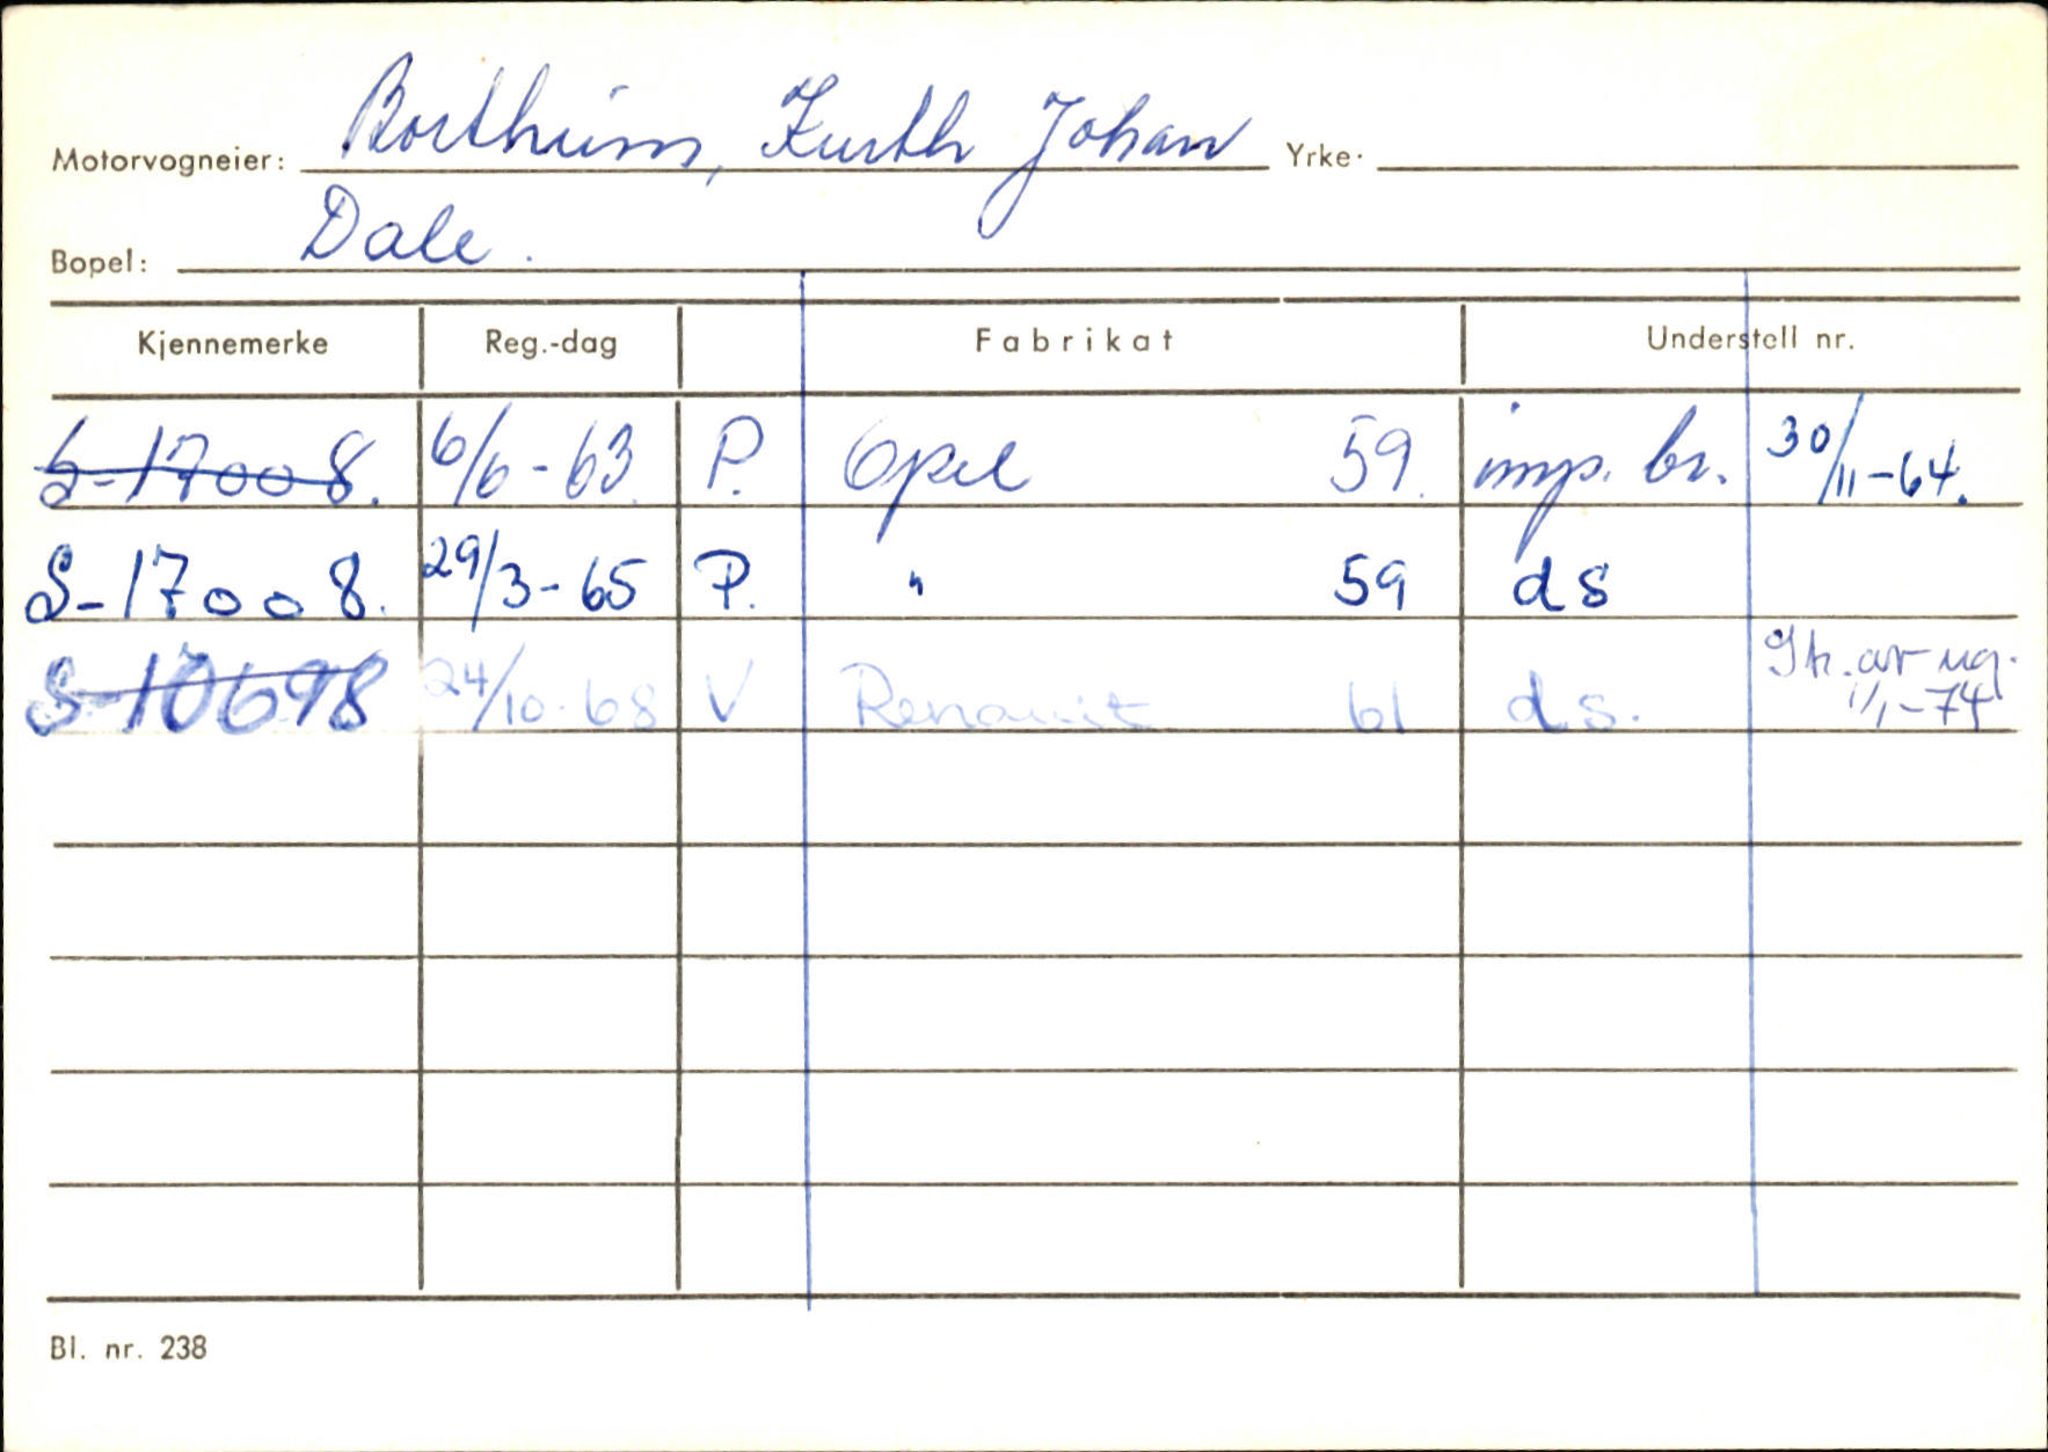 Motorvogneier: Borthum, Kurth Johan Yrke.
Bopel: Dale.
Kjennemerke Reg.-dag Fabrikat Understell nr.
S-17008. 6/6-63. P. Opel 59. imp. br. 30/11-64.
S-17008. 29/3-65 P. " 59 ds
S-10698 24/10-68 V Renault 61 ds. av 1/1-74
Bl. nr. 238